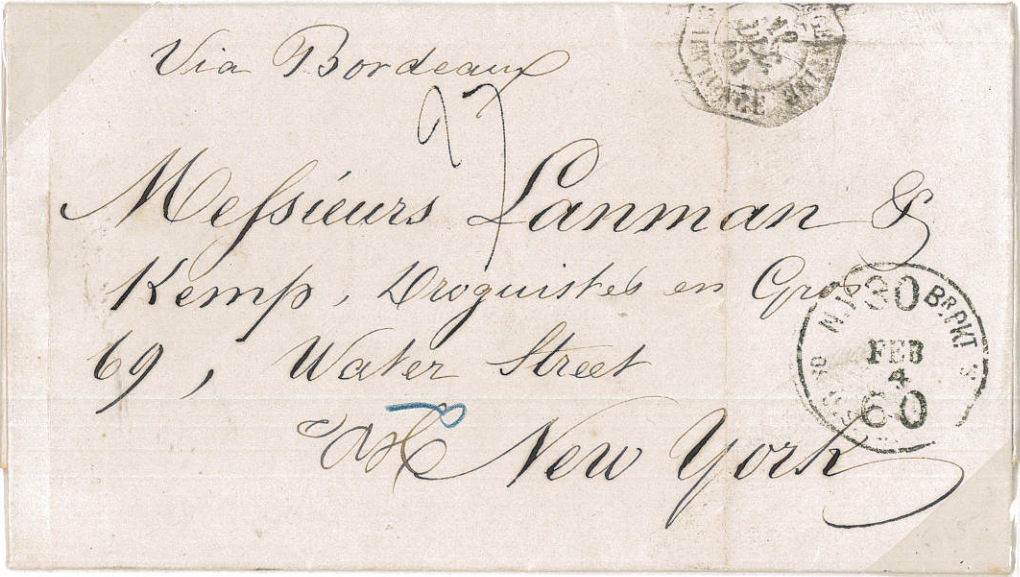 Via Bordeaux
27
Messieurs Lanman &
Kemp, Droguistes en Gros
69, Water Street
New York
N.Y. 30 BR. PKT.
FEB
4
60